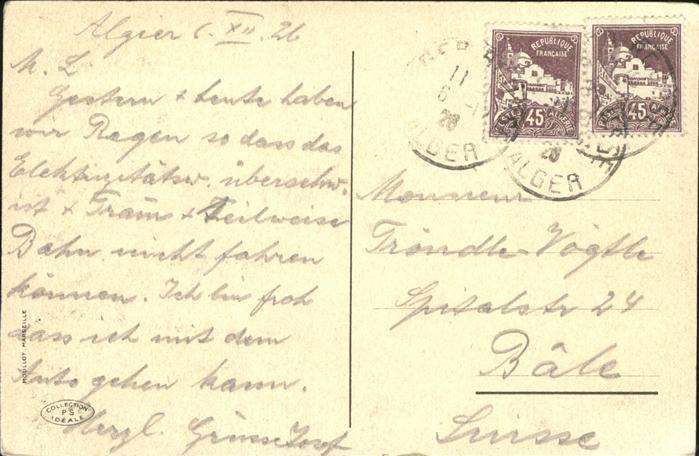 Algier 6. XII. 26
M. L
Gestern + heute haben
wir Regen so dass das
Elektrizitätsw. überschw.
ist + Trams + teilweise
Bahn nicht fahren
können. Ich bin froh
dass ich mit dem
Auto gehen kann.
Herzl. Grüsse Josef
MOULLOT MARSEILLE
COLLECTION
P S
IDÉALE
REPUBLIQUE
FRANÇAISE
45
ALGERIE
REPUBLIQUE
FRANÇAISE
45
11
6
26
ALGER
26
ALGER
Monsieur
Tröndle-Vögtle
Spitalstr 24
Bâle
Suisse